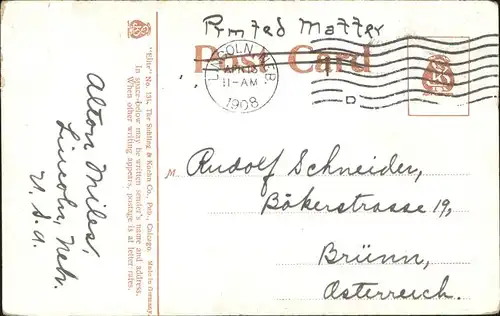 Printed Matter
Post Card
LINCOLN, NEBR.
APR 13
11-AM
1908
D
M Rudolf Schneider,
Bäkerstrasse 19,
Brünn,
Österreich.
Alton Miles,
Lincoln, Nebr.
U. S. A.
"Elite" No. 131, The Suhling & Koehn Co., Pub., Chicago. Made in Germany.
In space below may be written sender's name and address.
When other writing appears, postage is at letter rates.